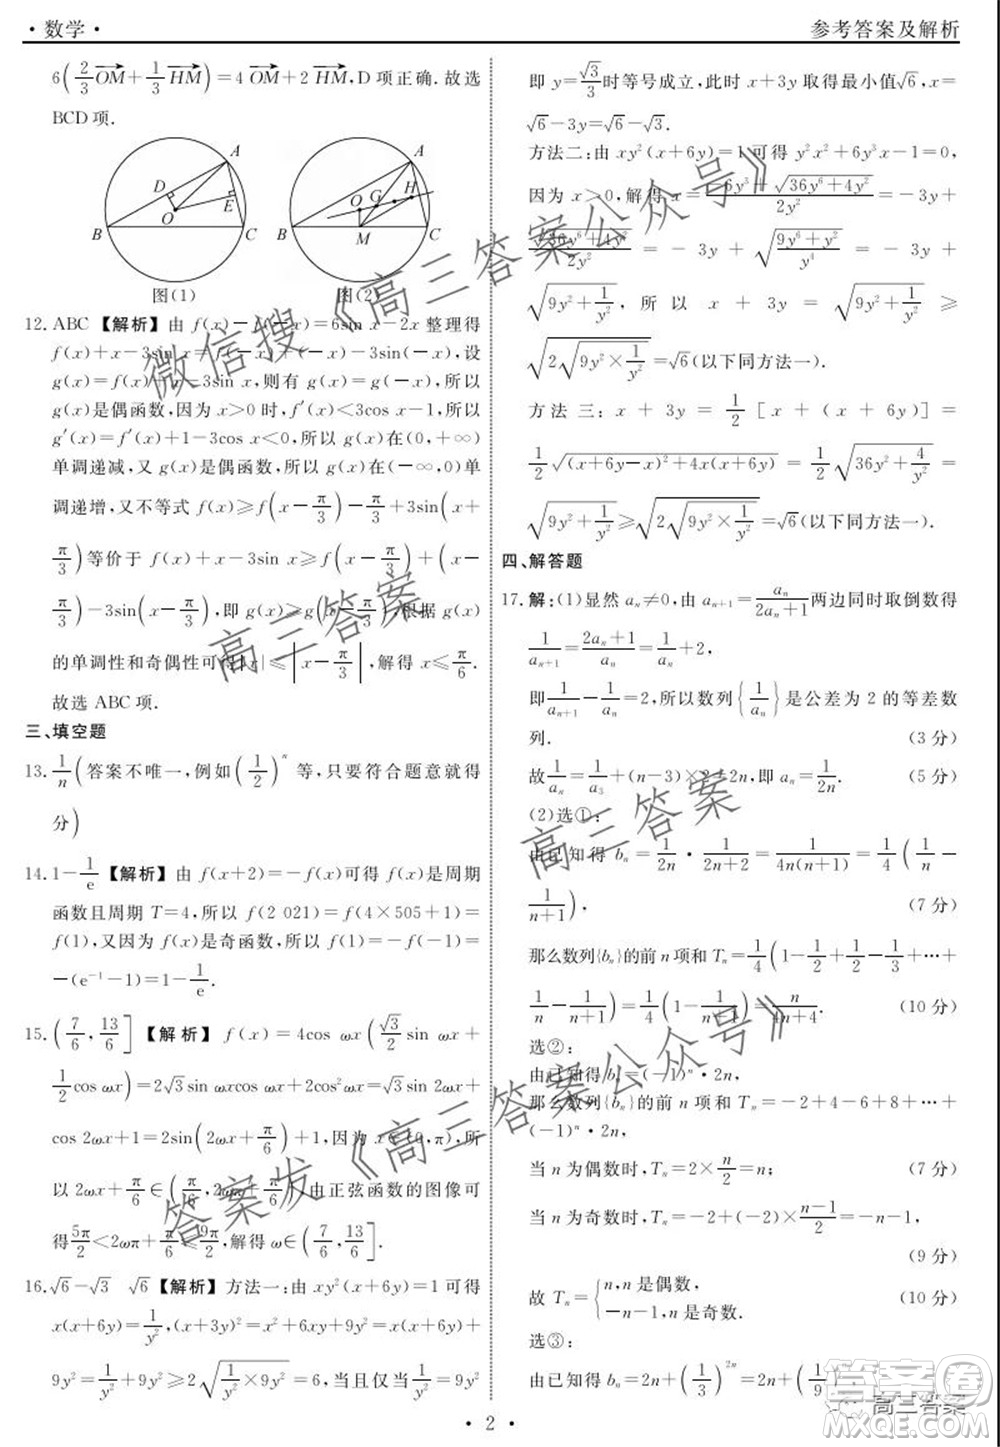 · 数学 ·
参考答案及解析
6(2/3 OM→ + 1/3 HM→)=4 OM→+2 HM→,D项正确.故选
BCD项.
A
D
O
E
B
C
图(1)
A
H
G
O
B
M
C
图(2)
12.ABC 【解析】由 f(x)-f(-x)=6sin x-2x 整理得
f(x)+x-3sin x=f(-x)-x-3sin(-x),设
g(x)=f(x)+x-3sin x,则有 g(x)=g(-x),所以
g(x)是偶函数,因为 x>0 时,f′(x)<3cos x-1,所以
g′(x)=f′(x)+1-3cos x<0,所以 g(x)在(0,+∞)
单调递减,又 g(x)是偶函数,所以 g(x)在(-∞,0)单
调递增,又不等式 f(x)≥f(x-π/3)-π/3+3sin(x+
π/3)等价于 f(x)+x-3sin x≥f(x-π/3)+(x-
π/3)-3sin(x-π/3),即 g(x)≥g(x-π/3),根据 g(x)
的单调性和奇偶性可得|x|≤|x-π/3|,解得 x≤π/6.
故选 ABC 项.
三、填空题
13. 1/n(答案不唯一,例如(1/2)^n 等,只要符合题意就得
分)
14. 1-1/e 【解析】由 f(x+2)=-f(x)可得 f(x)是周期
函数且周期 T=4,所以 f(2 021)=f(4×505+1)=
f(1),又因为 f(x)是奇函数,所以 f(1)=-f(-1)=
-(e^-1-1)=1-1/e.
15. (7/6,13/6] 【解析】f(x)=4cos ωx(√3/2 sin ωx+
1/2 cos ωx)=2√3sin ωxcos ωx+2cos²ωx=√3sin 2ωx+
cos 2ωx+1=2sin(2ωx+π/6)+1,因为 x∈(0,π),所
以 2ωx+π/6∈(π/6,2ωπ+π/6),由正弦函数的图像可
得 5π/2<2ωπ+π/6≤9π/2,解得 ω∈(7/6,13/6].
16. √6-√3 √6 【解析】方法一:由 xy²(x+6y)=1 可得
x(x+6y)=1/y²,(x+3y)²=x²+6xy+9y²=x(x+6y)+
9y²=1/y²+9y²≥2√(1/y²×9y²)=6,当且仅当 1/y²=9y²,
即 y=√3/3时等号成立,此时 x+3y 取得最小值√6,x=
√6-3y=√6-√3.
方法二:由 xy²(x+6y)=1 可得 y²x²+6y³x-1=0,
因为 x>0,解得 x=(-6y³+√(36y⁶+4y²))/2y²=-3x+
√(36y⁶+4y²)/2y²=-3y+√((9y⁶+y²)/y⁴)=-3y+
√(9y²+1/y²),所以 x+3y=√(9y²+1/y²)≥
√(2√(9y²×1/y²))=√6(以下同方法一).
方法三:x+3y=1/2[x+(x+6y)]=
1/2√((x+6y-x)²+4x(x+6y))=1/2√(36y²+4/y²)=
√(9y²+1/y²)≥√(2√(9y²×1/y²))=√6(以下同方法一).
四、解答题
17.解:(1)显然 aₙ≠0,由 aₙ₊₁=aₙ/(2aₙ+1)两边同时取倒数得
1/aₙ₊₁=(2aₙ+1)/aₙ=1/aₙ+2,
即 1/aₙ₊₁-1/aₙ=2,所以数列{1/aₙ}是公差为 2 的等差数
列. (3分)
故 1/aₙ=1/a₃+(n-3)×2=2n,即 aₙ=1/2n. (5分)
(2)选①:
由已知得 bₙ=1/2n·1/(2n+2)=1/4n(n+1)=1/4(1/n-
1/(n+1)), (7分)
那么数列{bₙ}的前 n 项和 Tₙ=1/4(1-1/2+1/2-1/3+…+
1/n-1/(n+1))=1/4(1-1/(n+1))=n/(4n+4). (10分)
选②:
由已知得 bₙ=(-1)ⁿ·2n,
那么数列{bₙ}的前 n 项和 Tₙ=-2+4-6+8+…+
(-1)ⁿ·2n,
当 n 为偶数时,Tₙ=2×n/2=n; (7分)
当 n 为奇数时,Tₙ=-2+(-2)×(n-1)/2=-n-1,
(9分)
故 Tₙ={n,n 是偶数,
-n-1,n 是奇数. (10分)
选③:
由已知得 bₙ=2n+(1/3)²ⁿ=2n+(1/9)ⁿ
· 2 ·
微信搜《高三答案公众号》
高三答案
高三答案
答案发《高三答案公众号》
答案卷
高三答案
MXQE.COM